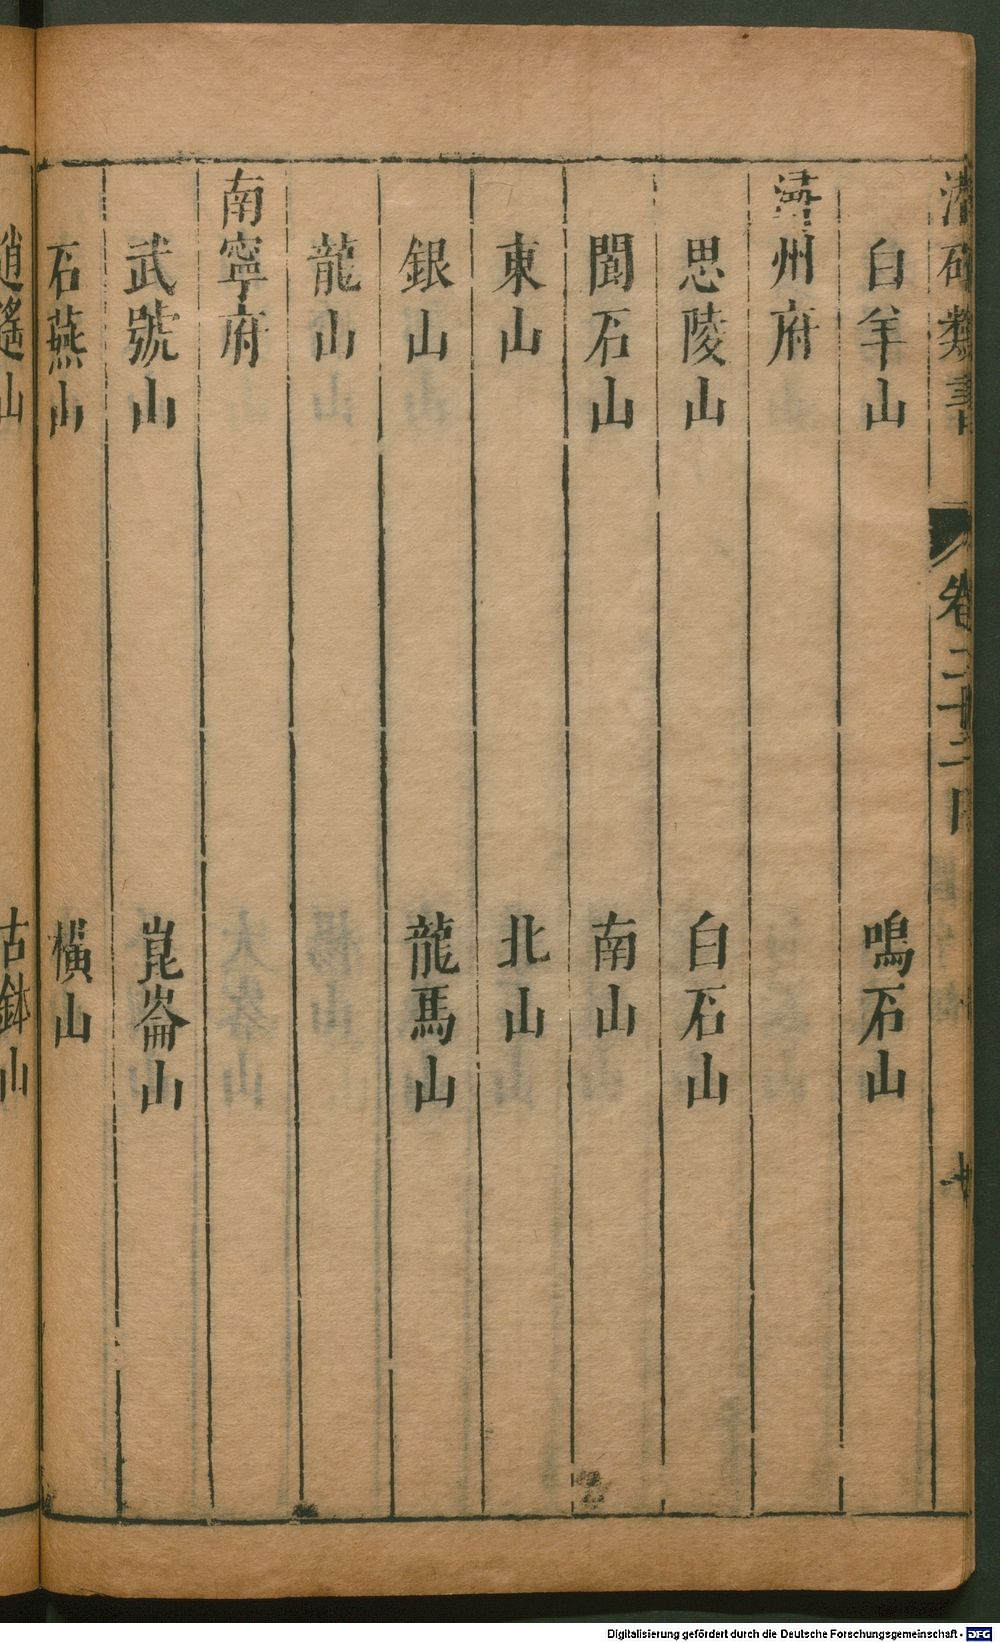 類書 卷二十二
白羊山 鳴石山
潯州府
思陵山 白石山
閬石山 南山
東山 北山
銀山 龍馬山
龍山
南寧府
武號山 崑崙山
石燕山 橫山
逍遙山 古鉢山
Digitalisierung gefördert durch die Deutsche Forschungsgemeinschaft - DFG